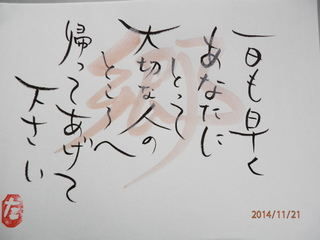 一日も早く
あなたに
とって
大切な人の
ところへ
帰ってあげて
下さい
郷
2014/11/21